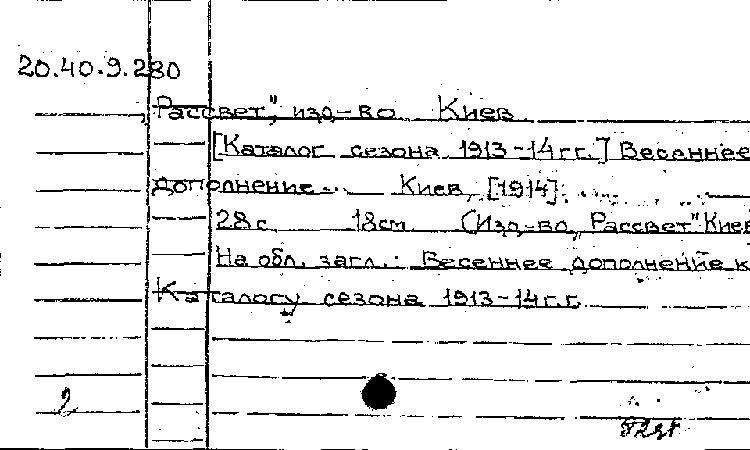 20.40.9.280
„Рассвет", изд-во Киев
[Каталог сезона 1913-14гг.] Весеннее
дополнение. Киев, [1914].
28с 18см (Изд-во „Рассвет" Киев
На обл. загл.: Весеннее дополнение к
Каталогу сезона 1913-14г.г.